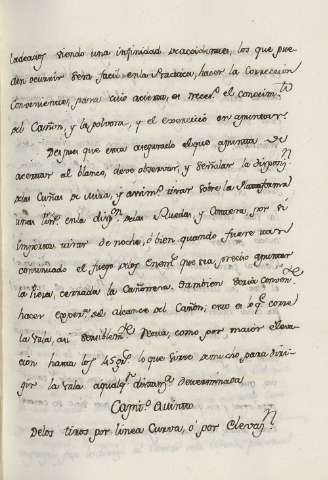 ladeados siendo una infinidad de acaecimientos, los que pue-
den ocurrir sera facil en la Practica, hacer la Correccion
Conveniente, para cuio acierto, es neces.º el conocim.to
del Cañon, y la polvora, y el exercicio en apuntar.
Despues que este asegurado el que apunta de
acertar al blanco, deve observar, y señalar la disposi.n
de las Cuñas de Mira, y assim.º tirar sobre la Plataforma
unas lin.s en la dir.n de las Ruedas, y Contera, por si
importa tirar de noche, ô bien quando fuere mui
continuado el fuego de los Enem.s que sea preciso apuntar
la Pieza, cerrada la Cañonera, tambien sera conven.te
hacer exper.s del alcance del Cañon, esto es lo q.e corre
la vala, asi sensiblem.te Recta, como por maior eleva-
cion hasta los 45 gr.s lo que sirve de mucho para diri-
gir la vala a qualq.r distanz.a determinada
Capit.º Quinto
De los tiros por linea Curva, ô por Elevaz.n